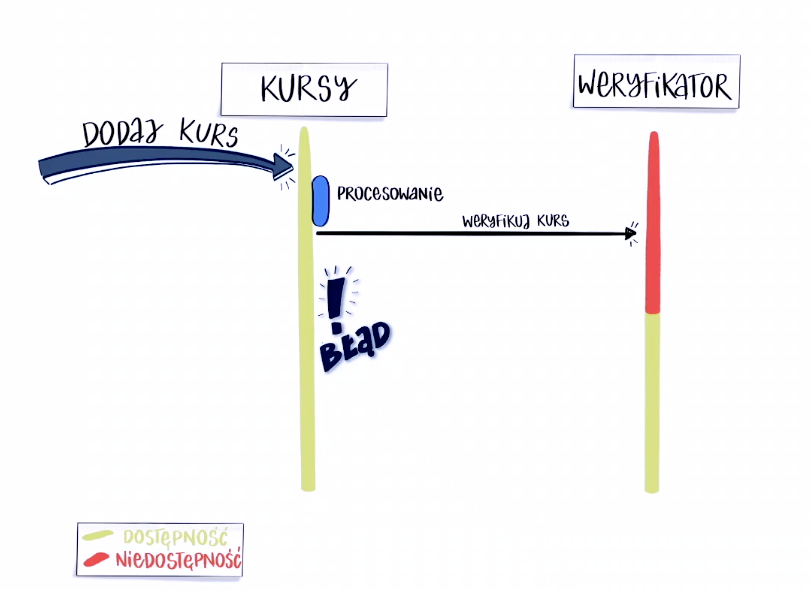 KURSY
WERYFIKATOR
DODAJ KURS
PROCESOWANIE
WERYFIKUJ KURS
!
BŁĄD
DOSTĘPNOŚĆ
NIEDOSTĘPNOŚĆ